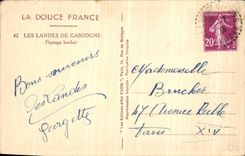 LA DOUCE FRANCE
42 LES LANDES DE GASCOGNE
Paysage landais
Bons souvenirs
des Landes
Georgette
Mademoiselle
Brucker
47 Avenue Reille
Paris XIV
20